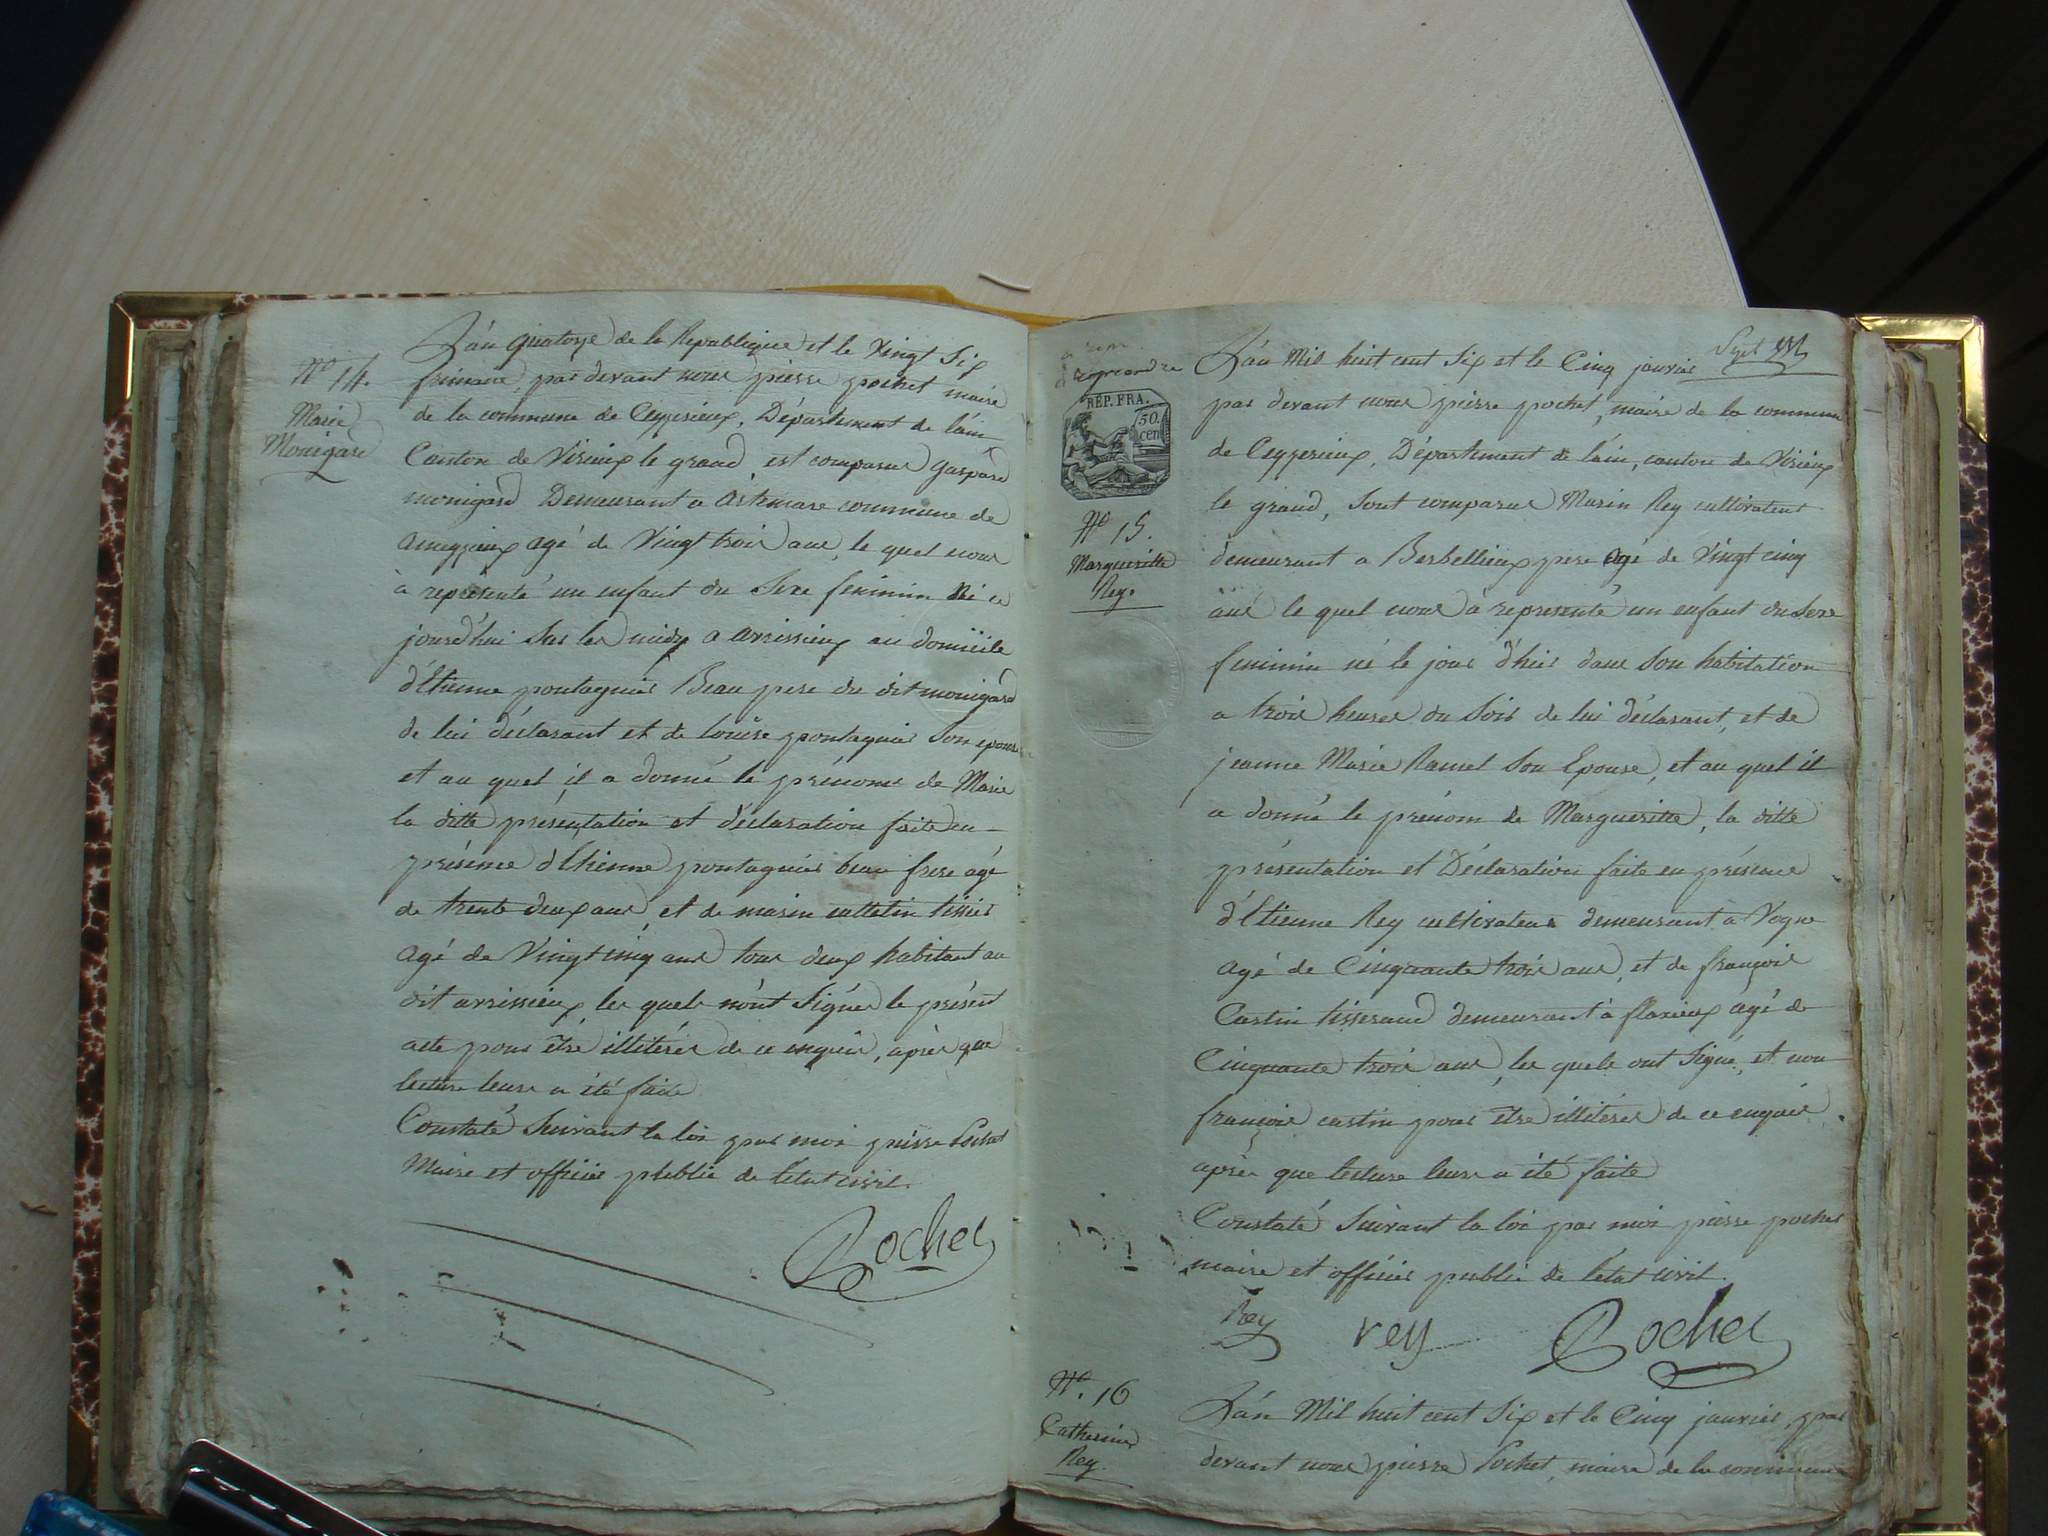 N.º 14.
Marie
Monigard
L'an quatorze de la Republique et le Vingt Six
frimaire, par devant nous pierre pochet maire
de la commune de Ceyzerieux, Département de l'ain
Canton de Virieux le grand, est comparus gaspard
monigard Demeurant a Artemare commune de
ameyzieux agé de Vingt trois ans, le quel nous
à représenté un enfant du Sexe feminin Né ce
jourd'hui Sur les midy a avrissieux au domicile
d'Etienne pontagnier Beau pere du dit monigard
de lui déclarant et de Louise pontagnier Son epouse
et au quel il a donné le prénoms de Marie
la ditte présentation et déclaration faite en
présence d'Etienne pontagnier beau frere agé
de trente deux ans et de marin cultetin tissier
agé de Vingt cinq ans tous deux habitant au
dit avrissieux, les quels n'ont Signés le présent
acte pour être illitérés de ce enquis, après que
lecture leurs a été faite
Constaté Suivant la loi par moi pierre Pochet
Maire et officier publie de l'état civil.
Pochet
REP. FRA.
50.
cen
N.º 15.
Margueritte
Rey.
L'an Mil huit cent Six et le Cinq janvier
par devant nous pierre pochet, maire de la commune
de Ceyzerieux, Département de l'ain, canton de Virieux
le grand, Sont comparus Marin Rey cultivateur
demeurant a Berbellieux pere agé de Vingt cinq
ans le quel nous à représenté un enfant du Sexe
feminin né le jour d'hier dans Son habitation
a trois heures du Soir de lui déclarant, et de
jeanne Marie Ramel Son Epouse, et au quel il
a donné le prénom de Margueritte, la ditte
présentation et Déclaration faite en présence
d'Etienne Rey cultivateur demeurant a Vogne
agé de Cinquante trois ans, et de françois
Castin tisserand demeurant à flaxieux agé de
Cinquante trois ans, les quels ont Signé, et non
françois castin pour être illitérés de ce enquis
après que lecture leurs a été faite
Constaté Suivant la loi par moi pierre pochet
maire et officier publie de l'état civil.
Rey rey Pochet
N.º 16
Catherine
Rey.
L'an Mil huit cent Six et le Cinq janvier, par
devant nous pierre Pochet, maire de la commune